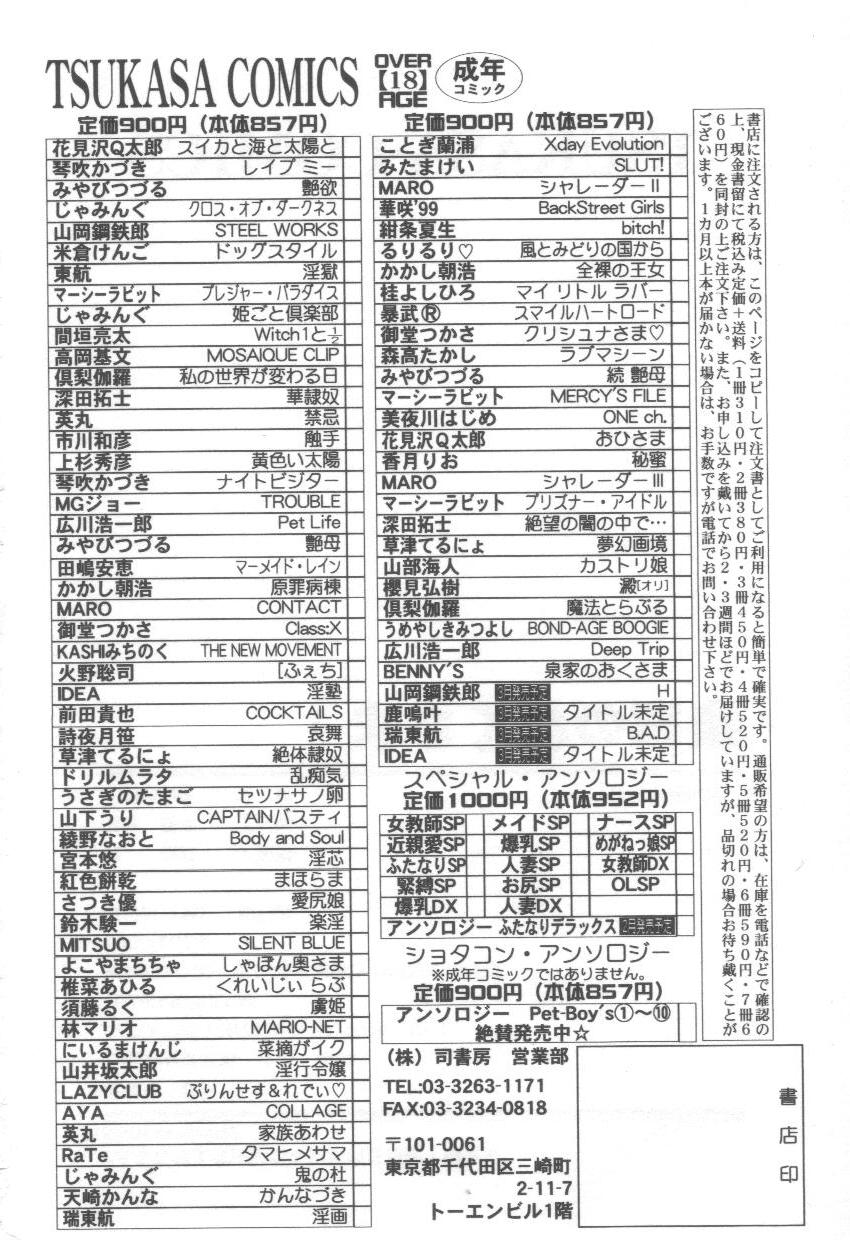 TSUKASA COMICS
OVER
【18】
AGE
成年
コミック
定価900円（本体857円）
花見沢Q太郎 スイカと海と太陽と
琴吹かづき レイプ ミー
みやびつづる 艶欲
じゃみんぐ クロス・オブ・ダークネス
山岡鋼鉄郎 STEEL WORKS
米倉けんご ドッグスタイル
東航 淫獄
マーシーラビット プレジャー・パラダイス
じゃみんぐ 姫ごと倶楽部
間垣亮太 Witch1と½
高岡基文 MOSAIQUE CLIP
倶梨伽羅 私の世界が変わる日
深田拓士 華隷奴
英丸 禁忌
市川和彦 触手
上杉秀彦 黄色い太陽
琴吹かづき ナイトビジター
MGジョー TROUBLE
広川浩一郎 Pet Life
みやびつづる 艶母
田嶋安恵 マーメイド・レイン
かかし朝浩 原罪病棟
MARO CONTACT
御堂つかさ Class:X
KASHIみちのく THE NEW MOVEMENT
火野聡司 [ふぇち]
IDEA 淫塾
前田貴也 COCKTAILS
詩夜月笹 哀舞
草津てるにょ 絶体隷奴
ドリルムラタ 乱痴気
うさぎのたまご セツナサノ卵
山下うり CAPTAINバスティ
綾野なおと Body and Soul
宮本悠 淫芯
紅色餅乾 まほらま
さつき優 愛尻娘
鈴木駿一 楽淫
MITSUO SILENT BLUE
よこやまちちゃ しゃぼん奥さま
椎菜あひる くれいじぃ らぶ
須藤るく 虜姫
林マリオ MARIO-NET
にいるまけんじ 菜摘がイク
山井坂太郎 淫行令嬢
LAZYCLUB ぷりんせす&れでぃ♡
AYA COLLAGE
英丸 家族あわせ
RaTe タマヒメサマ
じゃみんぐ 鬼の杜
天崎かんな かんなづき
瑞東航 淫画
定価900円（本体857円）
ことぎ蘭浦 Xday Evolution
みたまけい SLUT!
MARO シャレーダーⅡ
華咲'99 BackStreet Girls
紺条夏生 bitch!
るりるり♡ 風とみどりの国から
かかし朝浩 全裸の王女
桂よしひろ マイ リトル ラバー
暴武® スマイルハートロード
御堂つかさ クリシュナさま♡
森高たかし ラブマシーン
みやびつづる 続 艶母
マーシーラビット MERCY'S FILE
美夜川はじめ ONE ch.
花見沢Q太郎 おひさま
香月りお 秘蜜
MARO シャレーダーⅢ
マーシーラビット プリズナー・アイドル
深田拓士 絶望の闇の中で…
草津てるにょ 夢幻画境
山部海人 カストリ娘
櫻見弘樹 澱[オリ]
倶梨伽羅 魔法とらぶる
うめやしきみつよし BOND-AGE BOOGIE
広川浩一郎 Deep Trip
BENNY'S 泉家のおくさま
山岡鋼鉄郎 3月発売予定 H
鹿鳴叶 3月発売予定 タイトル未定
瑞東航 3月発売予定 B.A.D
IDEA 3月発売予定 タイトル未定
スペシャル・アンソロジー
定価1000円（本体952円）
女教師SP メイドSP ナースSP
近親愛SP 爆乳SP めがねっ娘SP
ふたなりSP 人妻SP 女教師DX
緊縛SP お尻SP OLSP
爆乳DX 人妻DX
アンソロジー ふたなりデラックス 2月発売予定
ショタコン・アンソロジー
※成年コミックではありません。
定価900円（本体857円）
アンソロジー Pet-Boy's①〜⑩
絶賛発売中☆
（株）司書房 営業部
TEL:03-3263-1171
FAX:03-3234-0818
〒101-0061
東京都千代田区三崎町
2-11-7
トーエンビル1階
書店に注文される方は、このページをコピーして注文書としてご利用になると簡単で確実です。通販希望の方は、在庫を電話などで確認の
上、現金書留にて税込み定価＋送料（1冊310円・2冊380円・3冊450円・4冊520円・5冊520円・6冊590円・7冊6
60円）を同封の上ご注文下さい。また、お申し込みを戴いてから2・3週間ほどでお届けしていますが、品切れの場合お待ち戴くことが
ございます。1カ月以上本が届かない場合は、お手数ですが電話でお問い合わせ下さい。
書店印